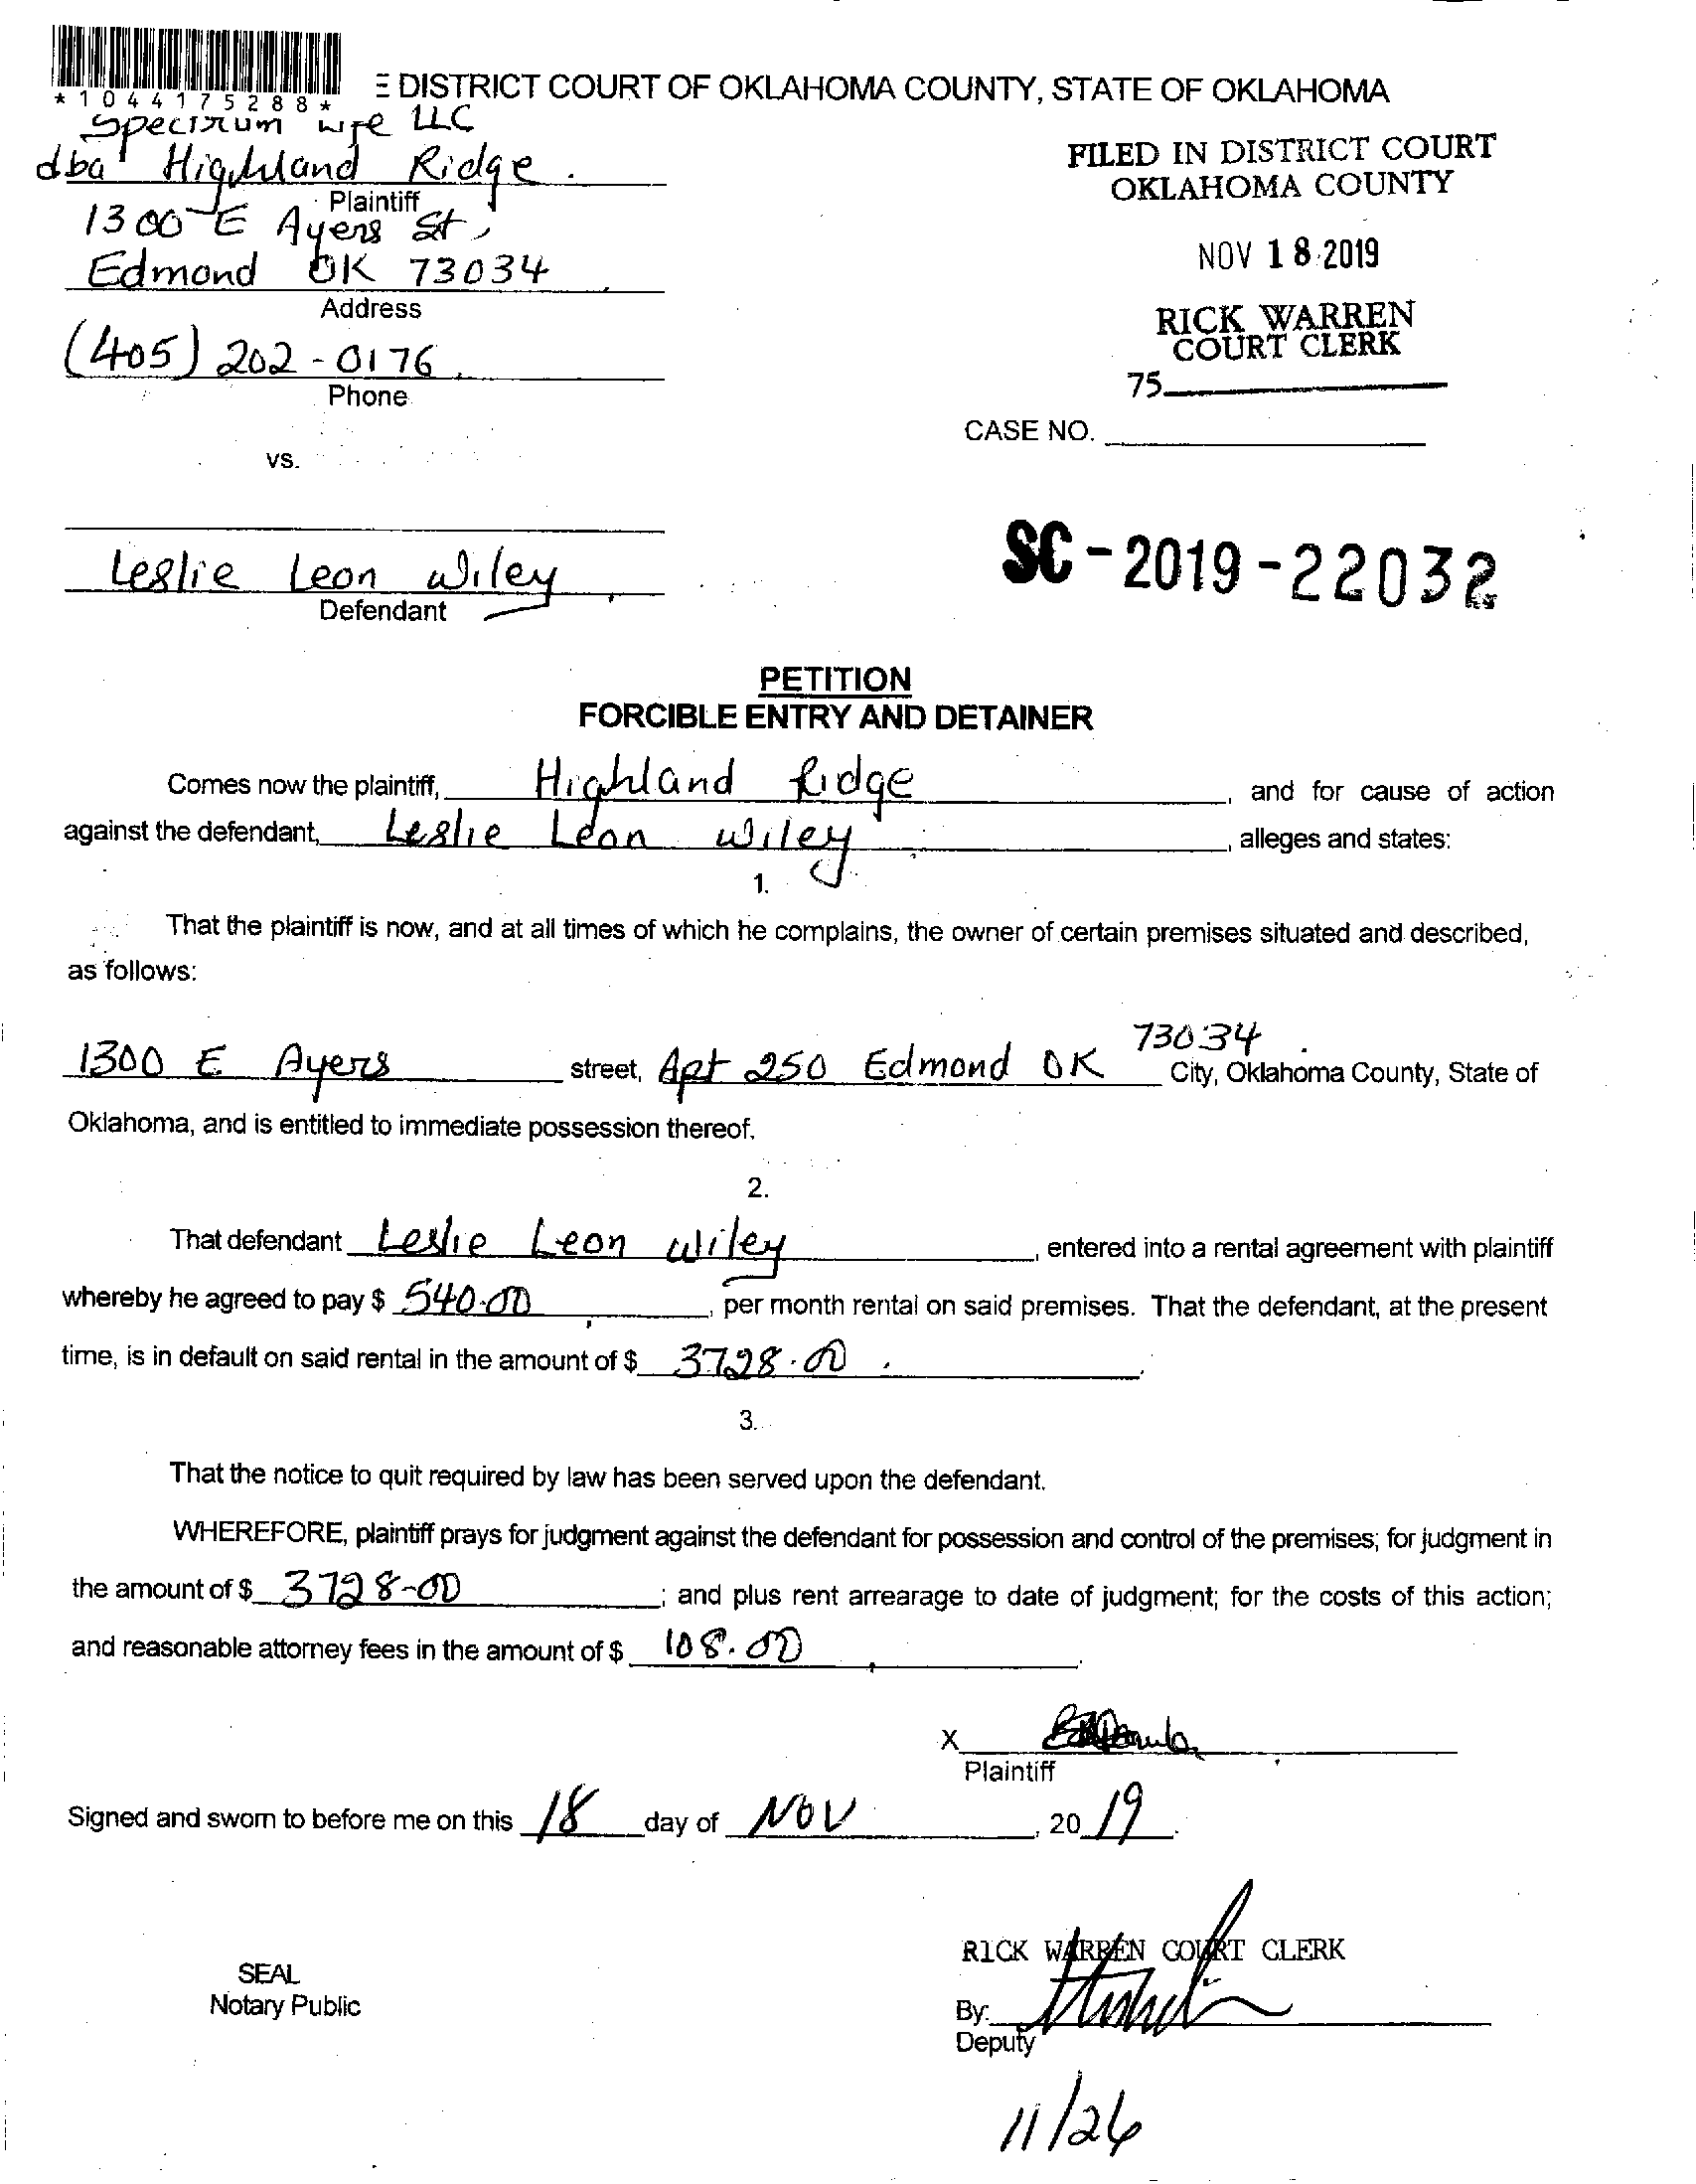 *1044175288*
E DISTRICT COURT OF OKLAHOMA COUNTY, STATE OF OKLAHOMA
Spectrum Life LLC
dba Highland Ridge
Plaintiff
1300 E Ayers St,
Edmond OK 73034
Address
(405) 202-0176
Phone
FILED IN DISTRICT COURT
OKLAHOMA COUNTY
NOV 18 2019
RICK WARREN
COURT CLERK
75
CASE NO.
vs.
SC-2019-22032
Leslie Leon Wiley
Defendant
PETITION
FORCIBLE ENTRY AND DETAINER
Comes now the plaintiff, Highland Ridge, and for cause of action
against the defendant, Leslie Leon Wiley, alleges and states:
1.
That the plaintiff is now, and at all times of which he complains, the owner of certain premises situated and described,
as follows:
1300 E Ayers street, Apt 250 Edmond OK 73034 City, Oklahoma County, State of
Oklahoma, and is entitled to immediate possession thereof.
2.
That defendant Leslie Leon Wiley, entered into a rental agreement with plaintiff
whereby he agreed to pay $ 540.00, per month rental on said premises. That the defendant, at the present
time, is in default on said rental in the amount of $ 3728.00.
3.
That the notice to quit required by law has been served upon the defendant.
WHEREFORE, plaintiff prays for judgment against the defendant for possession and control of the premises; for judgment in
the amount of $ 3728-00; and plus rent arrearage to date of judgment; for the costs of this action;
and reasonable attorney fees in the amount of $ 108.00.
X
Plaintiff
Signed and sworn to before me on this 18 day of NOV, 20 19.
SEAL
Notary Public
RICK WARREN COURT CLERK
By:
Deputy
11/26